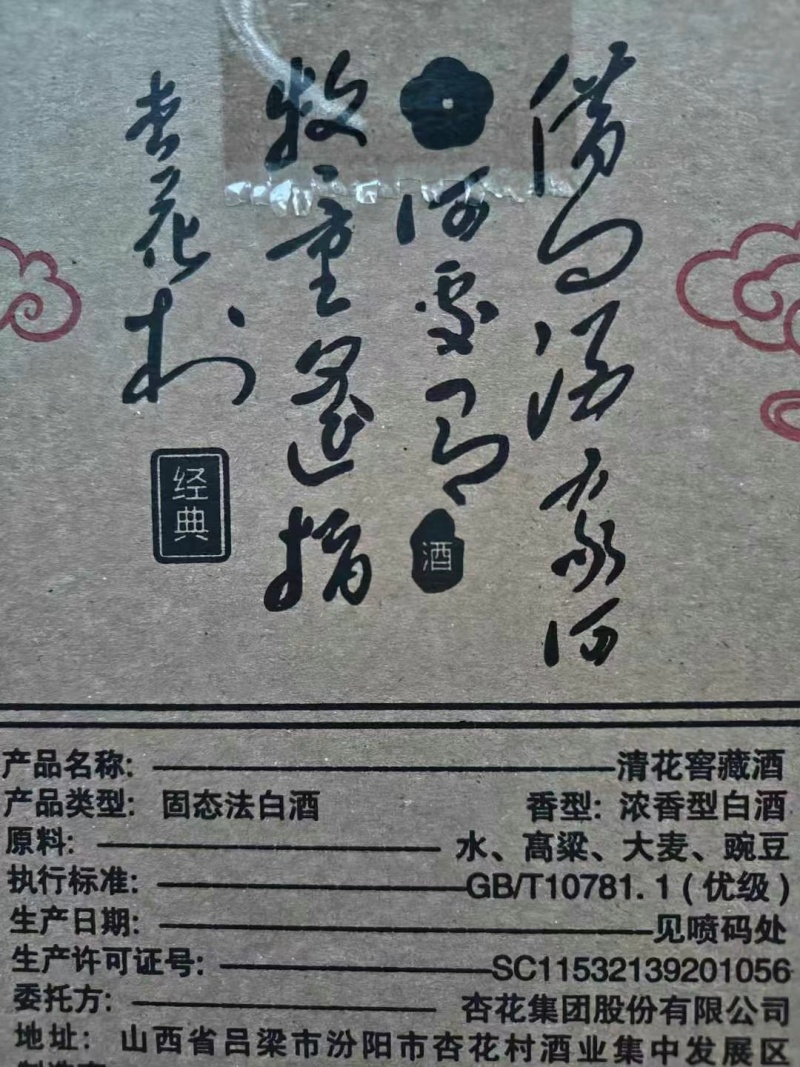 借问酒家
何处有
酒
牧童遥指
杏花村
经典
产品名称: 清花窖藏酒
产品类型: 固态法白酒 香型: 浓香型白酒
原料: 水、高粱、大麦、豌豆
执行标准: GB/T10781.1(优级)
生产日期: 见喷码处
生产许可证号: SC11532139201056
委托方: 杏花集团股份有限公司
地址: 山西省吕梁市汾阳市杏花村酒业集中发展区